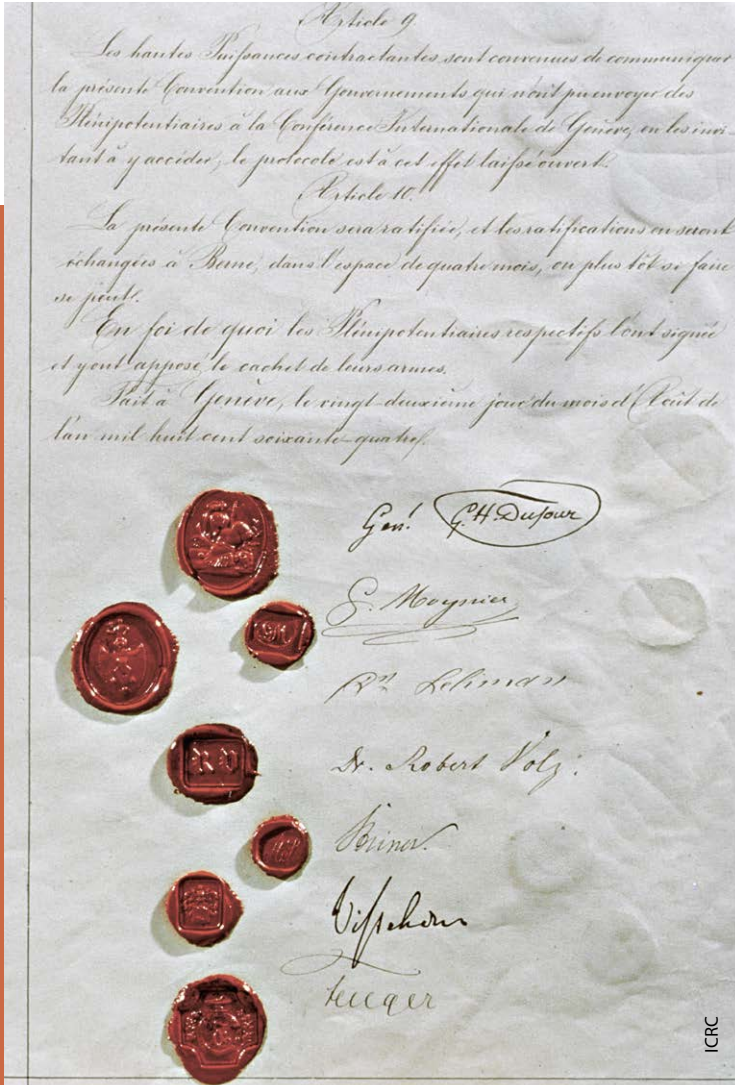 Article 9.
Les hautes Puissances contractantes sont convenues de communiquer
la présente Convention aux Gouvernements qui n'ont pu envoyer des
Plénipotentiaires à la Conférence Internationale de Genève, en les invi-
tant à y accéder; le protocole est à cet effet laissé ouvert.
Article 10.
La présente Convention sera ratifiée, et les ratifications en seront
échangées à Berne, dans l'espace de quatre mois, ou plus tôt si faire
se peut.
En foi de quoi les Plénipotentiaires respectifs l'ont signée
et y ont apposé le cachet de leurs armes.
Fait à Genève, le vingt-deuxième jour du mois d'Août de
l'an mil huit cent soixante-quatre.
Gen! G. H. Dufour
G. Moynier
Dr. Robert Volz.
Visschers
R V
M
ICRC